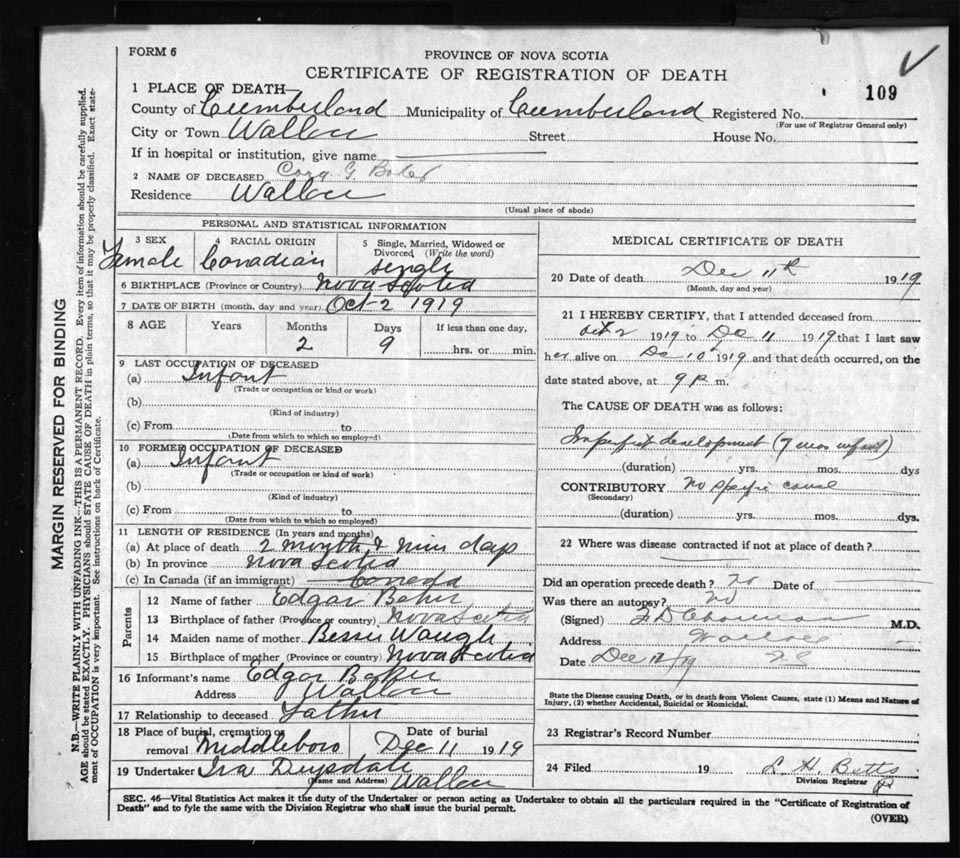 FORM 6
PROVINCE OF NOVA SCOTIA
CERTIFICATE OF REGISTRATION OF DEATH
109
1 PLACE OF DEATH—
County of Cumberland Municipality of Cumberland Registered No.
(For use of Registrar General only)
City or Town Wallace Street House No.
If in hospital or institution, give name
2 NAME OF DECEASED Cora G. Baker
Residence Wallace
(Usual place of abode)
PERSONAL AND STATISTICAL INFORMATION
3 SEX Female
4 RACIAL ORIGIN Canadian
5 Single, Married, Widowed or Divorced (Write the word) single
6 BIRTHPLACE (Province or Country) Nova Scotia
7 DATE OF BIRTH (month, day and year) Oct-2 1919
8 AGE Years Months Days If less than one day,
2 9 hrs. or min.
9 LAST OCCUPATION OF DECEASED
(a) Infant
(Trade or occupation or kind or work)
(b)
(Kind of industry)
(c) From to
(Date from which to which so employed)
10 FORMER OCCUPATION OF DECEASED
(a) Infant
(Trade or occupation or kind of work)
(b)
(Kind of industry)
(c) From to
(Date from which to which so employed)
11 LENGTH OF RESIDENCE (In years and months)
(a) At place of death 2 month & nine days
(b) In province Nova Scotia
(c) In Canada (if an immigrant) Canada
Parents
12 Name of father Edgar Baker
13 Birthplace of father (Province or country) Nova Scotia
14 Maiden name of mother Bessie Waugh
15 Birthplace of mother (Province or country) Nova Scotia
16 Informant's name Edgar Baker
Address Wallace
17 Relationship to deceased Father
18 Place of burial, cremation or removal Middleboro
Date of burial Dec 11 1919
19 Undertaker Ira Drysdale
(Name and Address) Wallace
MEDICAL CERTIFICATE OF DEATH
20 Date of death Dec 11th 1919
(Month, day and year)
21 I HEREBY CERTIFY, that I attended deceased from
Oct 2 1919 to Dec 11 1919 that I last saw
her alive on Dec 10 1919 and that death occurred, on the
date stated above, at 9 P m.
The CAUSE OF DEATH was as follows:
Imperfect development (7 mos infant)
(duration) yrs. mos. dys
CONTRIBUTORY no specific cause
(Secondary)
(duration) yrs. mos. dys.
22 Where was disease contracted if not at place of death?
Did an operation precede death? no Date of
Was there an autopsy? no
(Signed) M.D.
Address Wallace
Date Dec 12/19 N S
State the Disease causing Death, or in death from Violent Causes, state (1) Means and Nature of
Injury, (2) whether Accidental, Suicidal or Homicidal.
23 Registrar's Record Number
24 Filed 19 L. H. Betts
Division Registrar
SEC. 46—Vital Statistics Act makes it the duty of the Undertaker or person acting as Undertaker to obtain all the particulars required in the "Certificate of Registration of
Death" and to fyle the same with the Division Registrar who shall issue the burial permit.
(OVER)
MARGIN RESERVED FOR BINDING
N.B.—WRITE PLAINLY WITH UNFADING INK—THIS IS A PERMANENT RECORD. Every item of information should be carefully supplied.
AGE should be stated EXACTLY. PHYSICIANS should STATE CAUSE OF DEATH in plain terms, so that it may be properly classified. Exact state-
ment of OCCUPATION is very important. See instructions on back of Certificate.